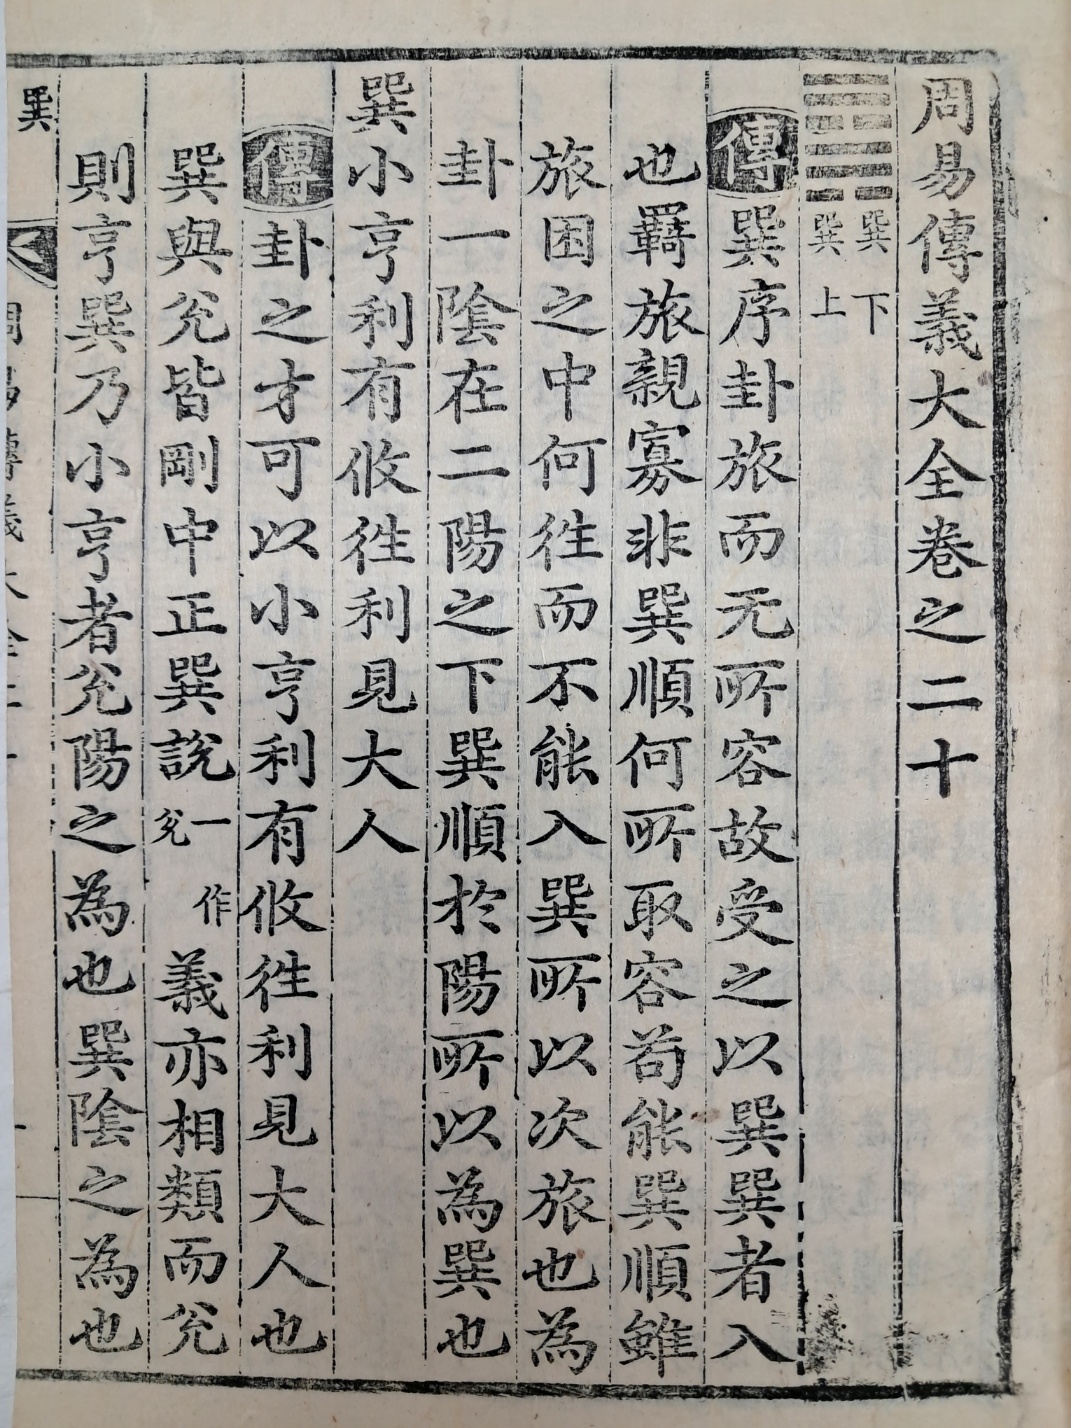 周易傳義大全卷之二十
巽下
巽上
傳巽序卦旅而无所容故受之以巽巽者入
也羇旅親寡非巽順何所取容苟能巽順雖
旅困之中何徃而不能入巽所以次旅也為
卦一陰在二陽之下巽順於陽所以為巽也
巽小亨利有攸徃利見大人
傳卦之才可以小亨利有攸徃利見大人也
巽與兊皆剛中正巽說一作兊義亦相類而兊
則亨巽乃小亨者兊陽之為也巽陰之為也
巽